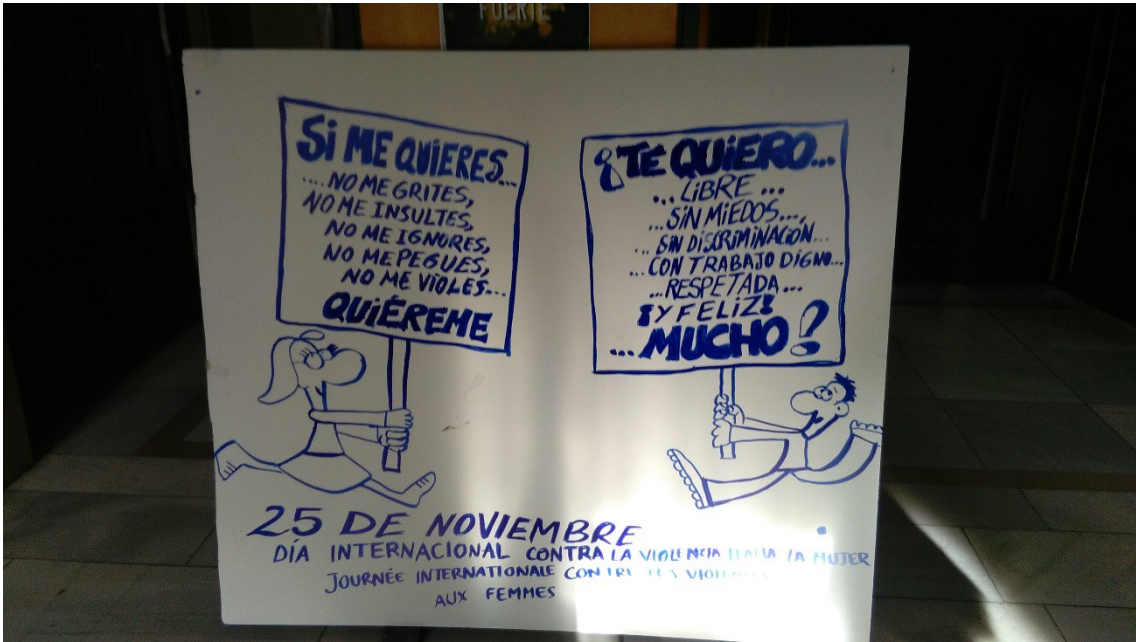 FUERTE
Si ME QUIERES...
....NO ME GRITES,
NO ME INSULTES,
NO ME IGNORES,
NO ME PEGUES,
NO ME VIOLES...
QUIÉREME
¡TE QUIERO...
...LIBRE...
...SIN MIEDOS...,
...SIN DISCRIMINACIÓN...
...CON TRABAJO DIGNO...
...RESPETADA...
¡Y FELIZ!
...MUCHO!
25 DE NOVIEMBRE
DÍA INTERNACIONAL CONTRA LA VIOLENCIA HACIA LA MUJER
JOURNÉE INTERNATIONALE CONTRE LES VIOLENCES
AUX FEMMES